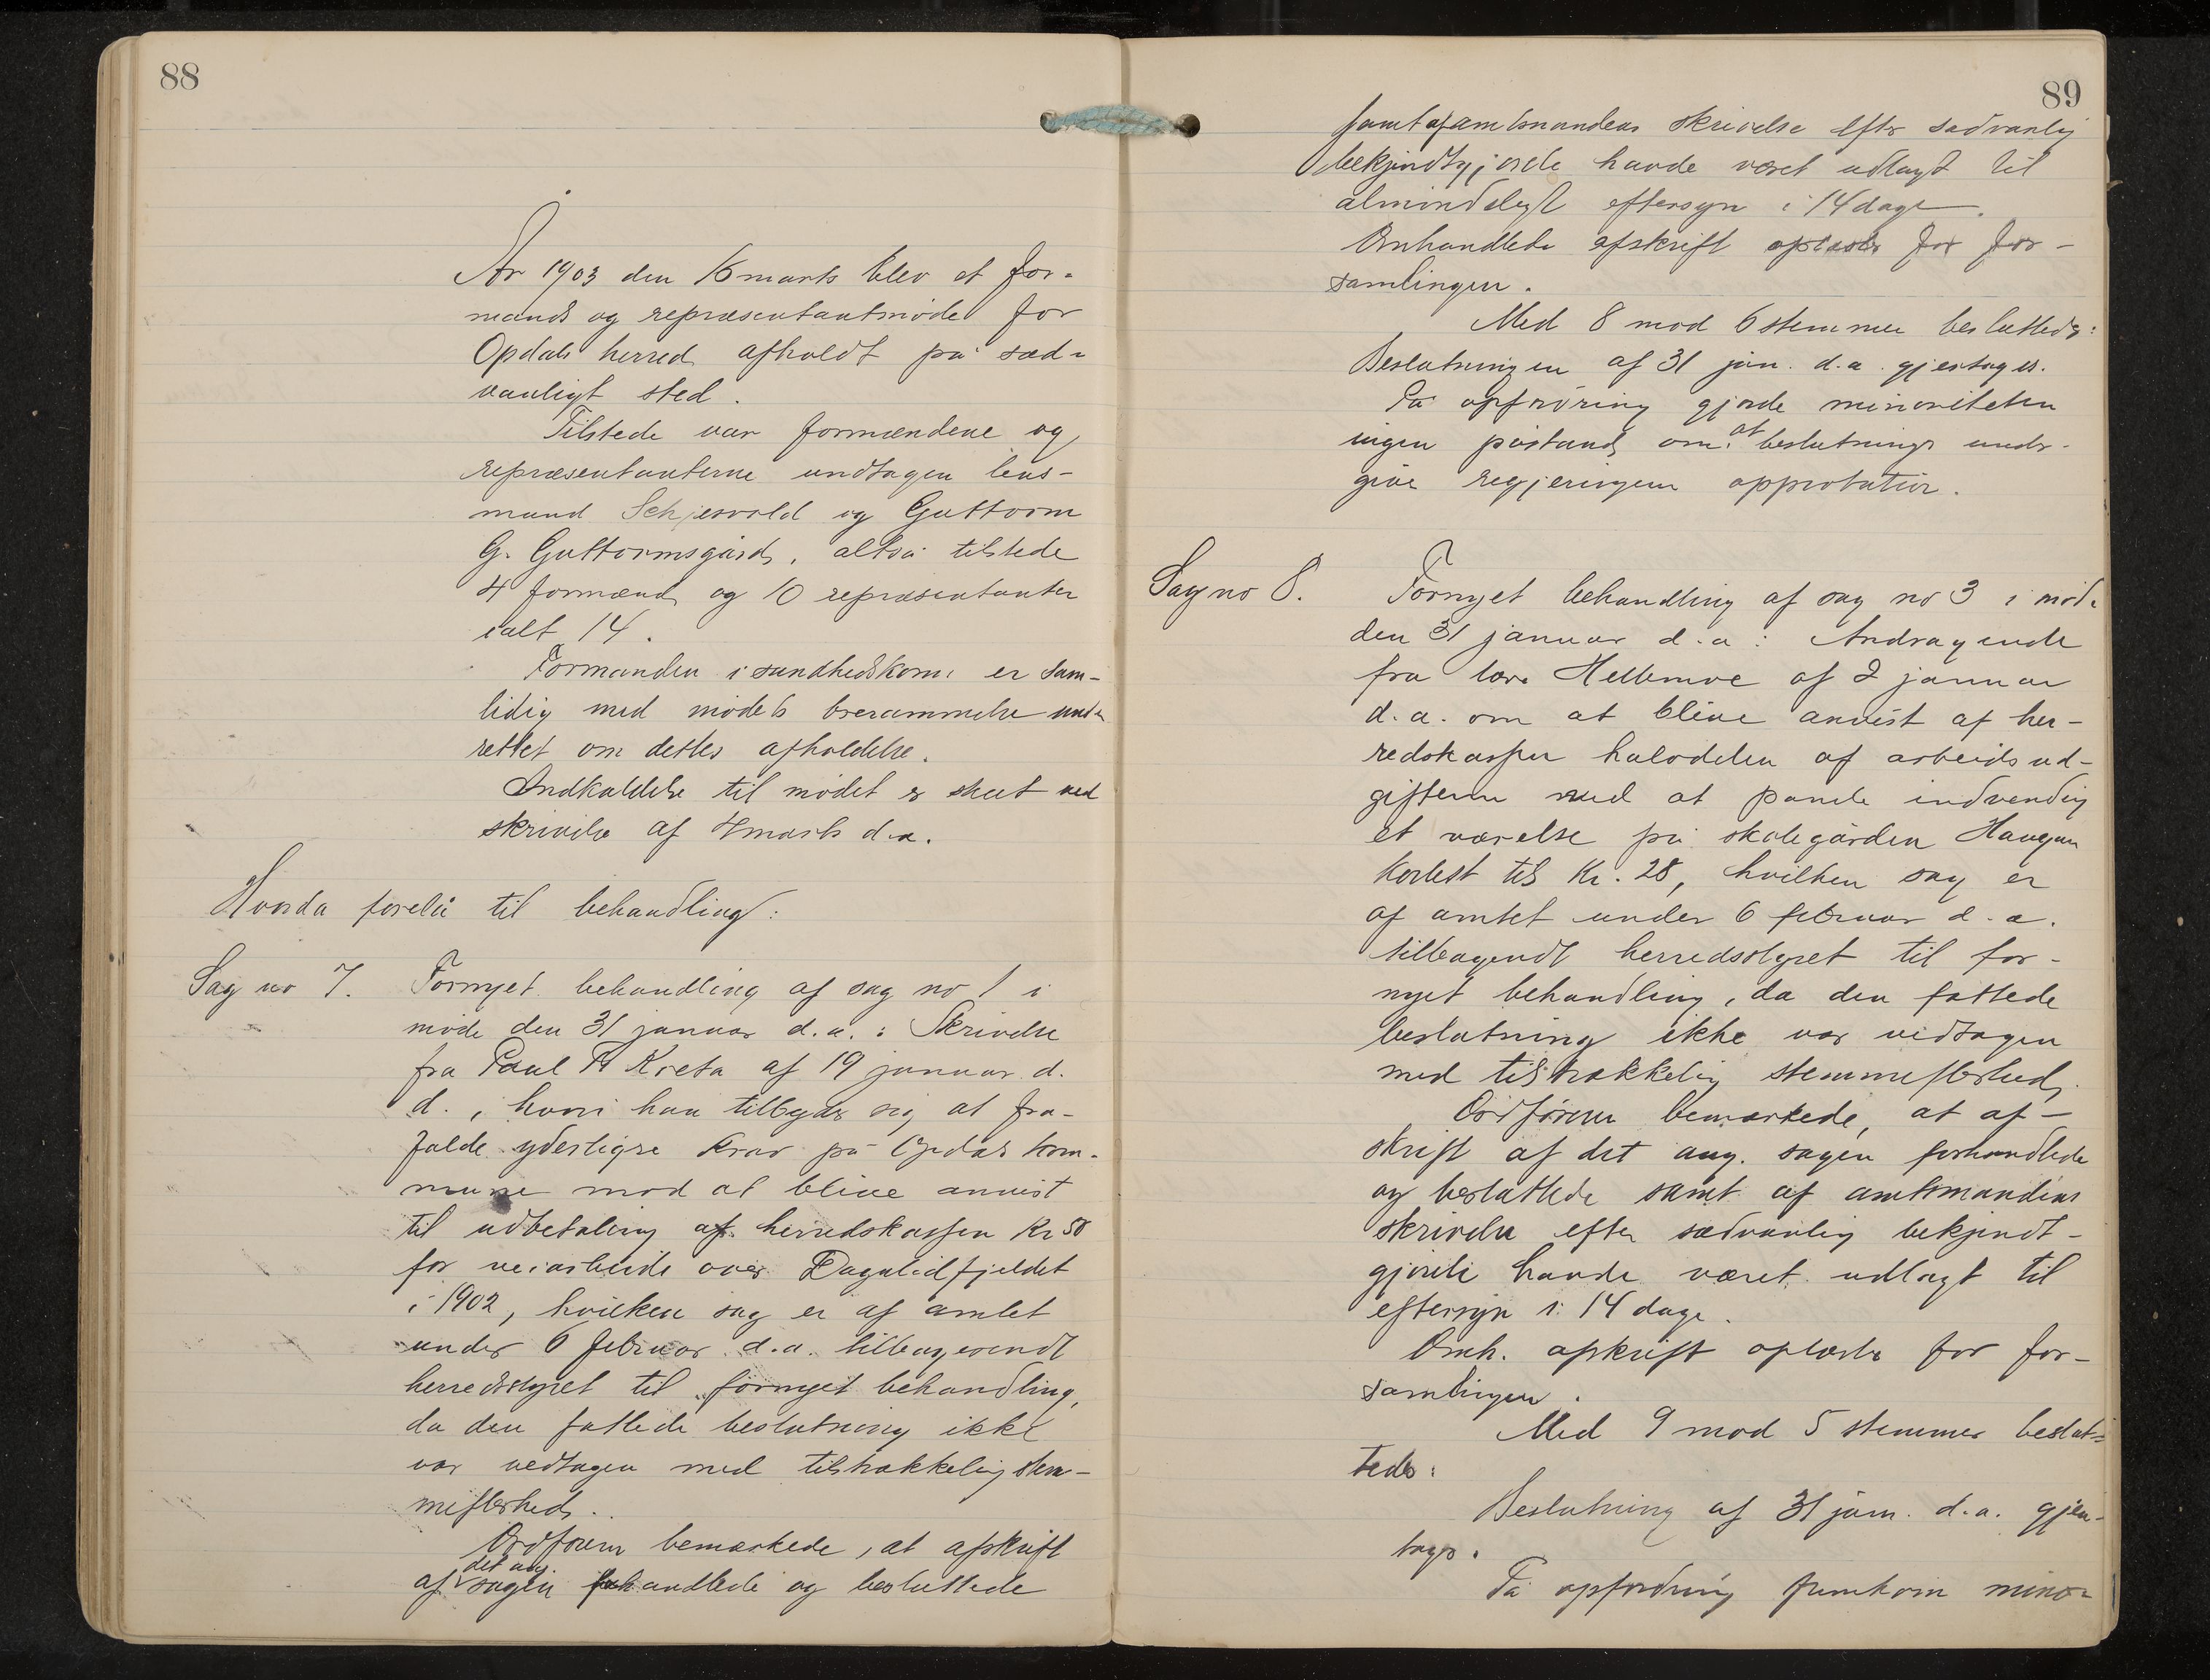 88
År 1903 den 16 marts blev et for-
mands og repræsentantmøde for
Opdals herred afholdt på sæd-
vanligt sted.
Tilstede var formændene og
repræsentanterne undtagen lens-
mand Schjesvold og Guttorm
G. Guttormsgård, altså tilstede
4 formænd og 10 repræsentanter
ialt 14.
Formanden i sundhedskom. er sam-
tidig med mødets berammelse und-
rettet om dettes afholdelse.
Indkaldelse til mødet er skeet ved
skrivelse af 4 marts d.a.
Hvorda forelå til behandling:
Sag no 7. Fornyet behandling af sag no 1 i
møde den 31 januar d.a.: Skrivelse
fra Paul P. Kreta af 19 januar d.
d., hvori han tilbyder sig at fra-
falde yderligre krav på Opdals kom-
mune mod at blive anvist
til udbetaling af herredskassen Kr 50
for veiarbeide over Dagalidfjeldet
i 1902, hvilken sag er af amtet
under 6 februar d.a. tilbagesendt
herredsstyret til fornyet behandling,
da den fattede beslutning ikke
var vedtagen med tilstrækkelig stem-
meflerhed.
Ordføreren bemærkede, at afskrift
af det ang. sagen forhandlede og besluttede
89
samt af amtmandens skrivelse efter sædvanlig
bekjendtgjørelse havde været udlagt til
almindeligt eftersyn i 14 dage.
Omhandlede afskrift oplæstes for for-
samlingen.
Med 8 mod 6 stemmer besluttedes:
Beslutningen af 31 jan. d.a. gjentages.
På opfordring gjorde minoriteten
ingen påstand om at beslutnings under-
give regjeringens approbation.
Sag no 8. Fornyet behandling af sag no 3 i møde
den 31 januar d.a.: Andragende
fra lærer Hellemoe af 2 januar
d.a. om at blive anvist af her-
redskassen halvdelen af arbeidsud-
gifterne ved at panele indvendig
et værelse på skolegården Haugen
kostest til Kr. 28, hvilken sag er
af amtet under 6 februar d.a.
tilbagesendt herredsstyret til for-
nyet behandling, da den fattede
beslutning ikke var vedtagen
med tilstrækkelig stemmeflerhed.
Ordføreren bemærkede, at af-
skrift af det ang. sagen forhandlede
og besluttede samt af amtmandens
skrivelse efter sædvanlig bekjendt-
gjørelse havde været udlagt til
eftersyn i 14 dage.
Omh. afskrift oplæstes for for-
samlingen.
Med 9 mod 5 stemmer beslut-
tedes:
Beslutning af 31 jan. d.a. gjen-
tages.
På opfordring fremkom mino-